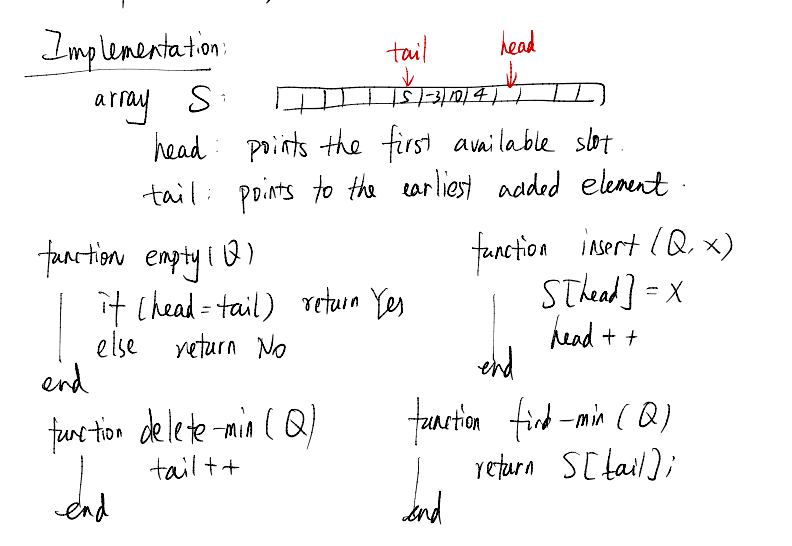 Implementation:
tail head
array S:
5 -3 10 4
head: points the first available slot.
tail: points to the earliest added element.
function empty(Q)
if (head=tail) return Yes
else return No
end
function insert (Q, x)
S[head] = x
head++
end
function delete-min (Q)
tail++
end
function find-min (Q)
return S[tail];
end